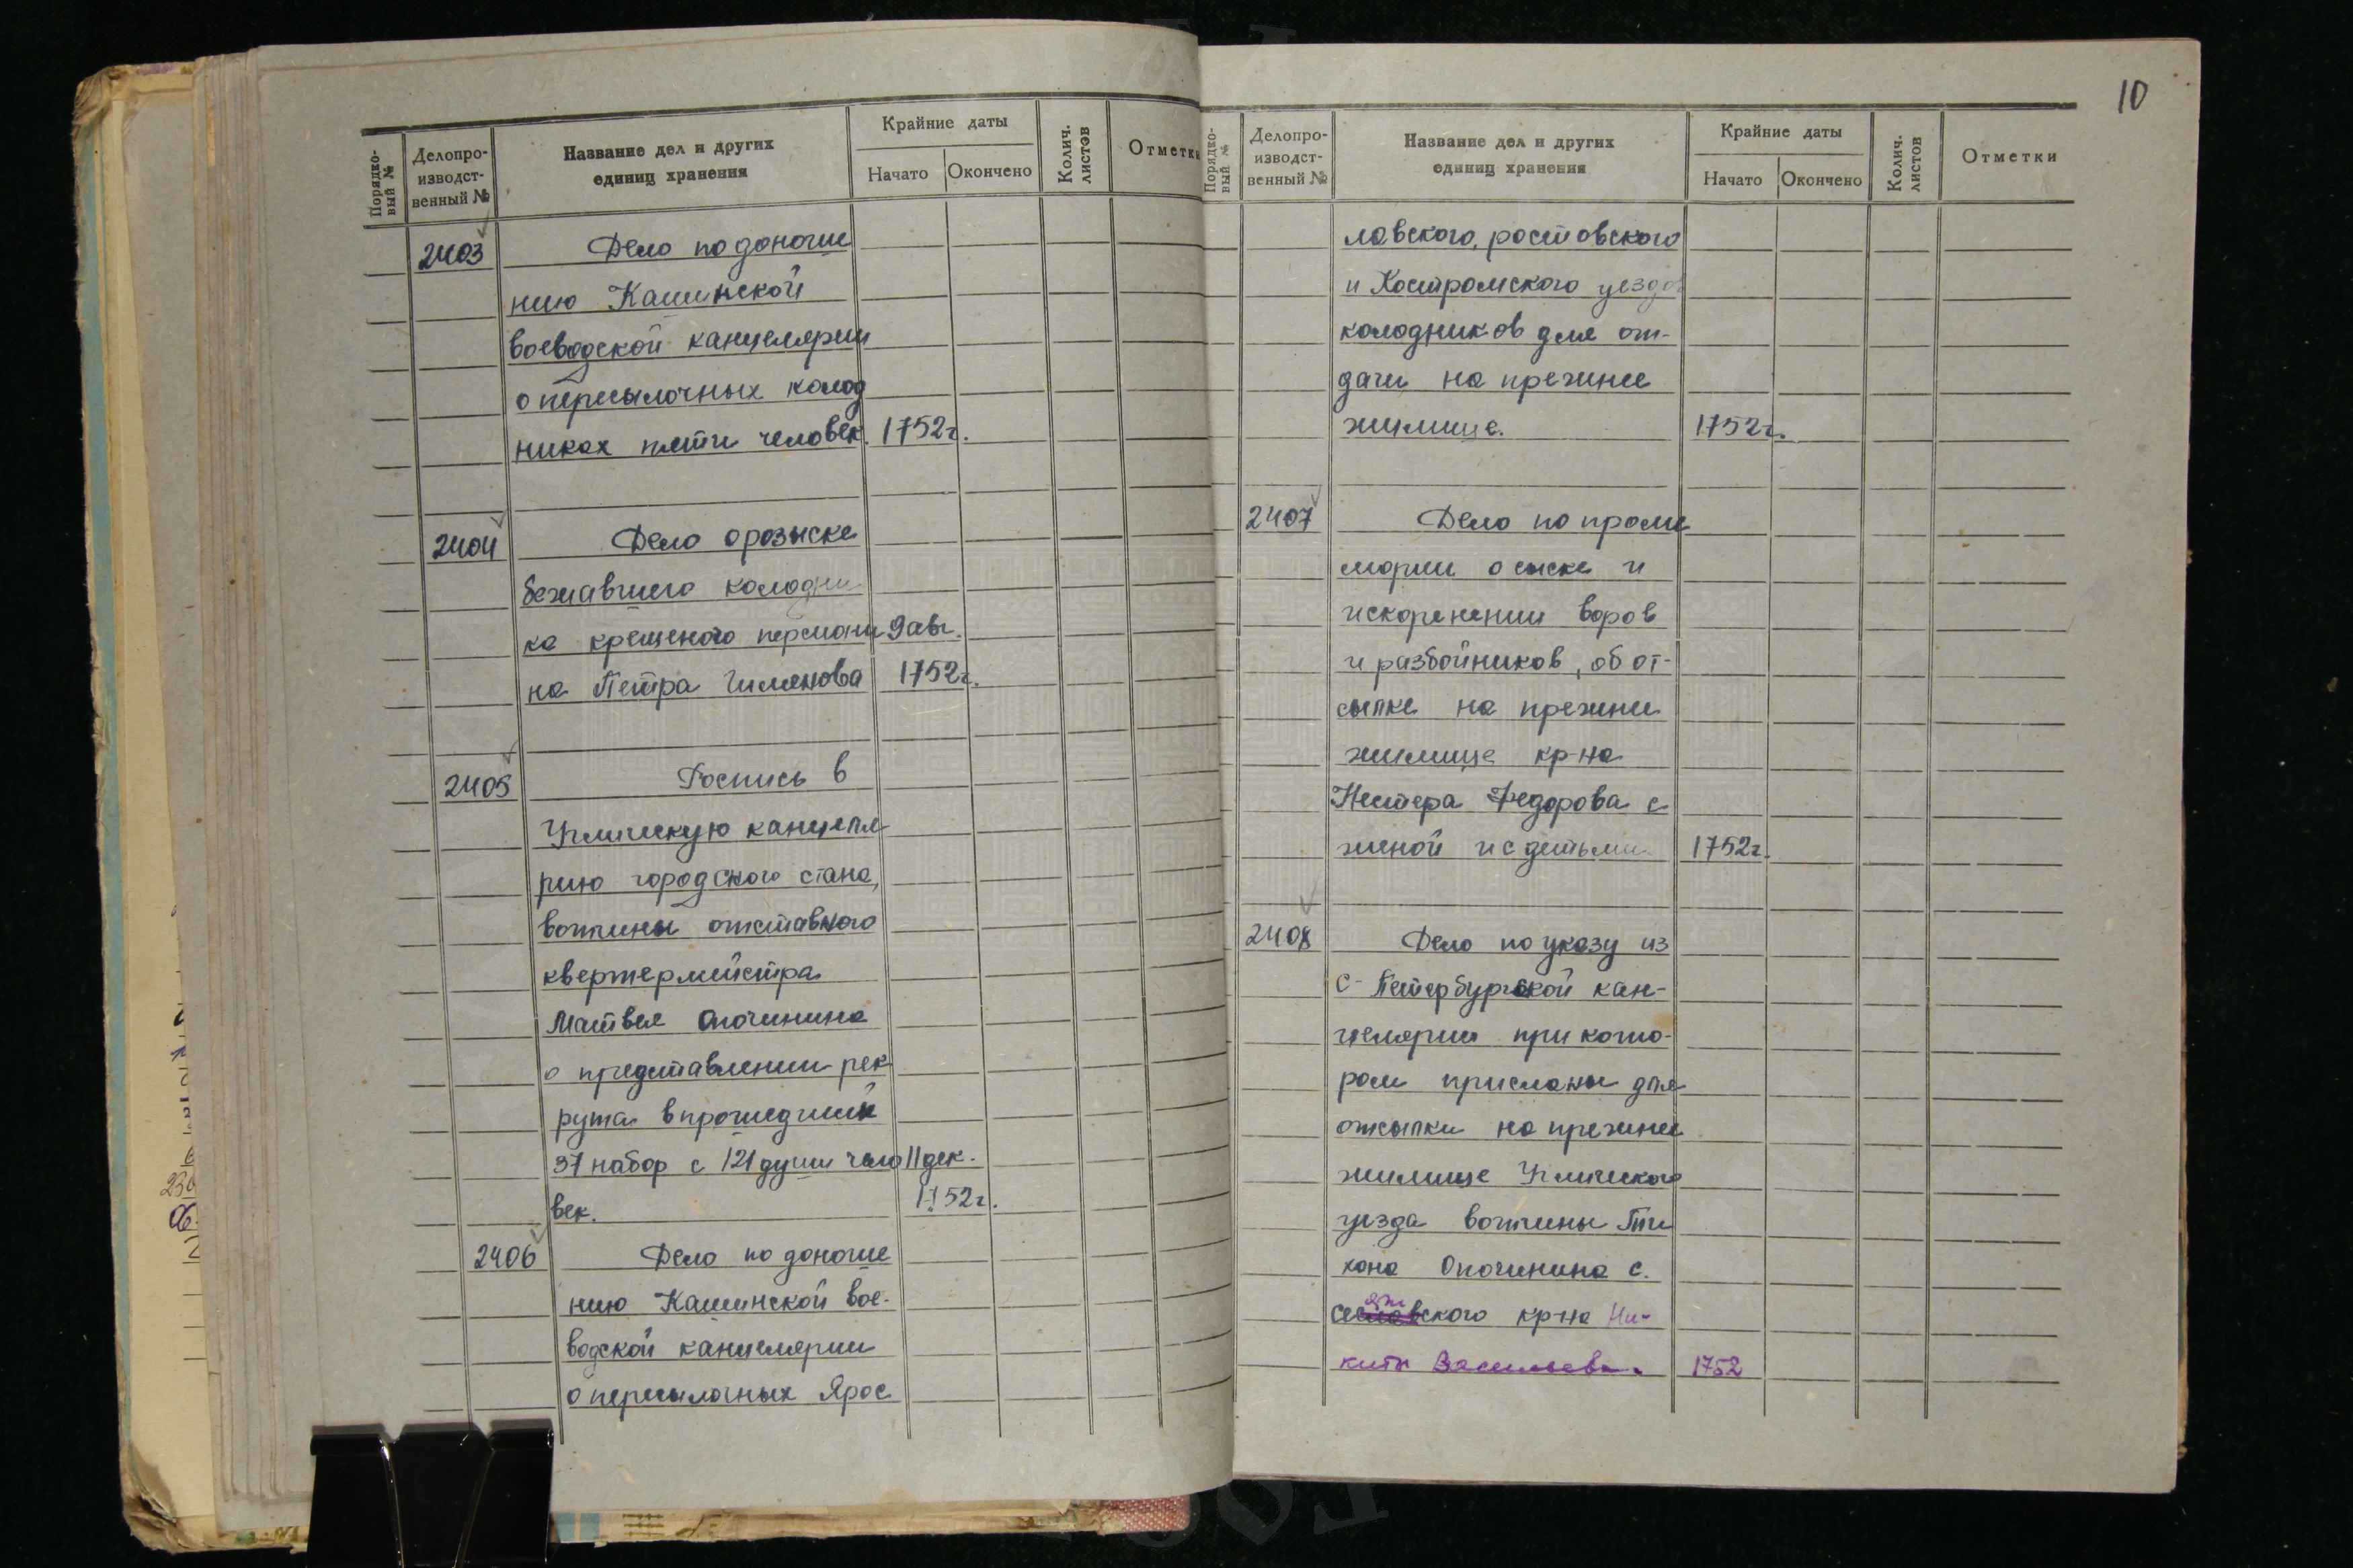 Порядко-
вый №
Делопро-
изводст-
венный №
Название дел и других
единиц хранения
Крайние даты
Начато
Окончено
Колич.
листов
Отметки
2403
Дело по доноше
нию Кашинской
воеводской канцелярии
о пересылочных колод
никах пяти человек. 1752г.
2404
Дело о розыске
бежавшего колодни
ка крещеного персиани 9 авг.
на Петра Иманова 1752г.
2405
Роспись в
Угличскую канцеля
рию городского стана,
вотчины отставного
квертермистра
Матвея Опочинина
о представлении рек
рута в прошедший
37 набор с 121 души чело 11 дек.
век. 1752г.
2406
Дело по доноше
нию Кашинской вое-
водской канцелярии
о пересылочных Ярос
10
Порядко-
вый №
Делопро-
изводст-
венный №
Название дел и других
единиц хранения
Крайние даты
Начато
Окончено
Колич.
листов
Отметки
лавского, ростовского
и Костромского уездов
колодников для от-
дачи на прежние
жилище. 1752г.
2407
Дело по проме
мории о сыске и
искоренении воров
и разбойников, об от-
сылке на прежние
жилище кр-на
Нестера Федорова с
женой и с детьми 1752г.
2408
Дело по указу из
С-Петербургской кан-
целярии при кото-
ром присланы для
отсылки на прежние
жилище Угличского
уезда вотчины Ти
хона Опочинина с.
ского кр-на Ни-
киты Васильева. 1752